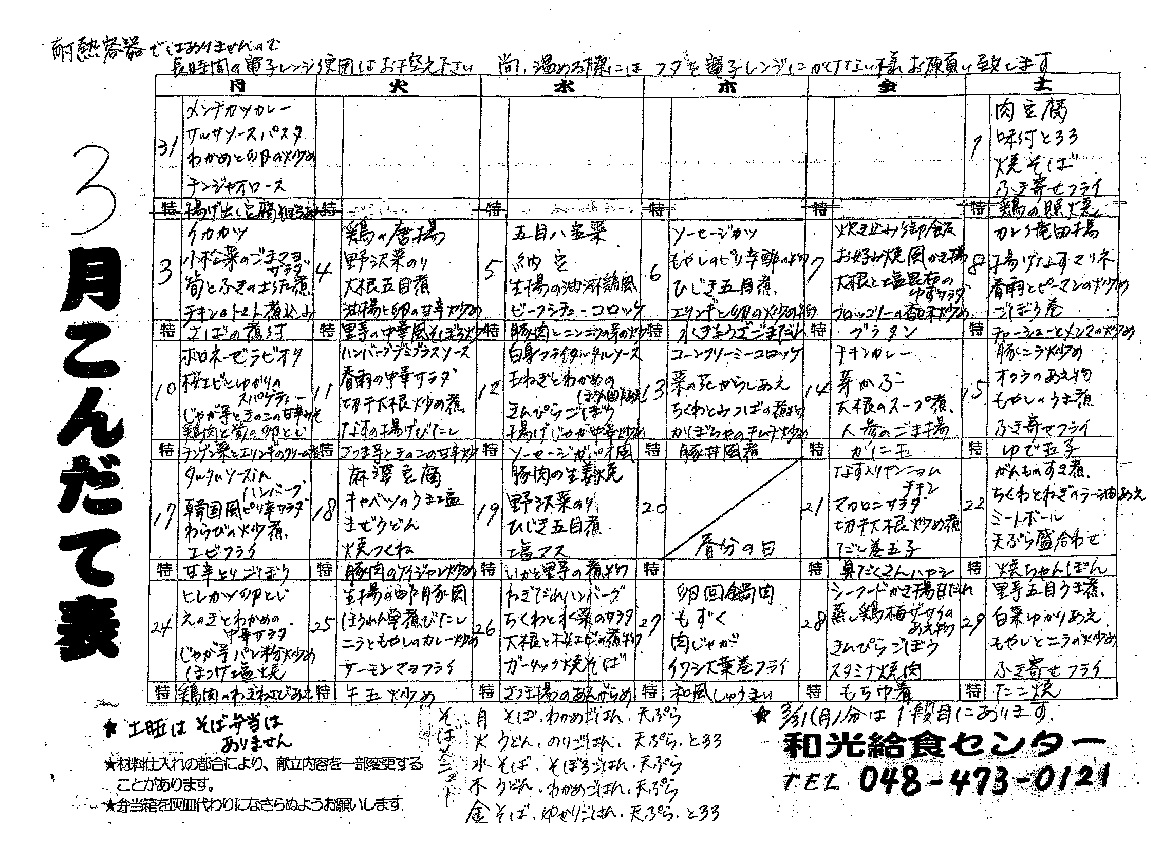 耐熱容器ではありませんので
長時間の電子レンジ使用はお控え下さい 尚、温める際には フタを電子レンジにかけない様お願い致します
3月こんだて表
月 火 水 木 金 土
31
メンチカツカレー
サルサソースパスタ
わかめと
チンジャオロース
特 揚げ出し豆腐
1
肉豆腐
味付とろろ
焼そば
ふき寄せフライ
特 鶏の照焼
3
イカカツ
小松菜のごまマヨサラダ
筍とふきの土佐煮
チキンのトマト煮込み
特 さばの煮付
4
鶏の唐揚
野沢菜のり
大根五目煮
特 里芋の中華風そぼろ
5
五目八宝菜
納豆
生揚の油淋鶏風
ビーフシチューコロッケ
特 豚肉とニンニクの芽の炒め
6
ソーセージカツ
もやしのピリ辛酢の物
ひじき五目煮
エリンギと卵の炒め物
特 水ぎょうざごまだれ
7
炊き込み御飯
お好み焼風かき揚
大根と塩昆布のゆずサラダ
特 グラタン
8
カレイ竜田揚
揚げなすマリネ
春雨とピーマンの炒め
ごぼう巻
特 チャーシューとメンマの炒め
10
ボロネーゼラビオリ
桜エビとゆかりのスパゲティー
じゃが芋ときのこの甘辛
鶏肉と筍の卵とじ
特 チンゲン菜とエリンギのクリーム煮
11
ハンバーグデミグラスソース
春雨の中華サラダ
切干大根炒め煮
なすの揚げびたし
12
白身フライタルタルソース
玉ねぎとわかめの
きんぴらごぼう
揚げじゃが中華炒め
特 ソーセージ
13
コーンクリーミーコロッケ
菜の花からしあえ
ちくわとみつばの煮
かぼちゃの
特 豚丼風煮
14
チキンカレー
芽かぶ
大根のスープ煮
人参のごま揚
特 かに玉
15
豚こう炒め
オクラのあえ物
もやしのうま煮
ふき寄せフライ
特 ゆで玉子
17
タルタルソースinハンバーグ
韓国風ピリ辛サラダ
わらびの炒煮
エビフライ
特 甘辛とりごぼう
18
麻婆豆腐
キャベツのうま塩
まぜうどん
焼つくね
特 豚肉のアイジャン炒め
19
豚肉の生姜焼
野沢菜のり
ひじき五目煮
塩マス
特 いかと里芋の煮物
20
春分の日
21
なす入りヤンニョムチキン
マカロニサラダ
切干大根炒め煮
だし巻玉子
特 具だくさんハヤシ
22
がんものすき煮
ちくわとねぎのラー油あえ
ミートボール
天ぷら盛合わせ
特 焼ちゃんぽん
24
ヒレカツの卵とじ
えのきとわかめの中華サラダ
じゃが芋パン粉炒め
ほっけ塩焼
特 鶏肉のねぎわさびあえ
25
生揚の四川豚肉
ほうれん草煮びたし
ニラともやしのカレー炒め
サーモンマヨフライ
特 牛玉炒め
26
ねぎだれハンバーグ
ちくわと水菜のサラダ
大根と桜エビの煮物
ガーリック焼そば
27
回鍋肉
もずく
肉じゃが
イワシ大葉巻フライ
特 和風しゅうまい
28
シーフードかき揚甘だれ
蒸し鶏梅ザーサイのあえ物
きんぴらごぼう
スタミナ焼肉
特 もち巾着
29
里芋五目うま煮
白菜ゆかりあえ
もやしとニラの炒め
ふき寄せフライ
特 たこ焼
★土曜は そば弁当はありません
★材料仕入れの都合により、献立内容を一部変更することがあります。
★弁当箱を灰皿代わりになさらぬようお願いします。
そばセット
月 そば、わかめごはん、天ぷら
火 うどん、のりごはん、天ぷら、とろろ
水 そば、そぼろごはん、天ぷら
木 うどん、わかめごはん、天ぷら
金 そば、ゆかりごはん、天ぷら、とろろ
★ 3/31(月)分は1段目にあります。
和光給食センター
TEL 048-473-0121